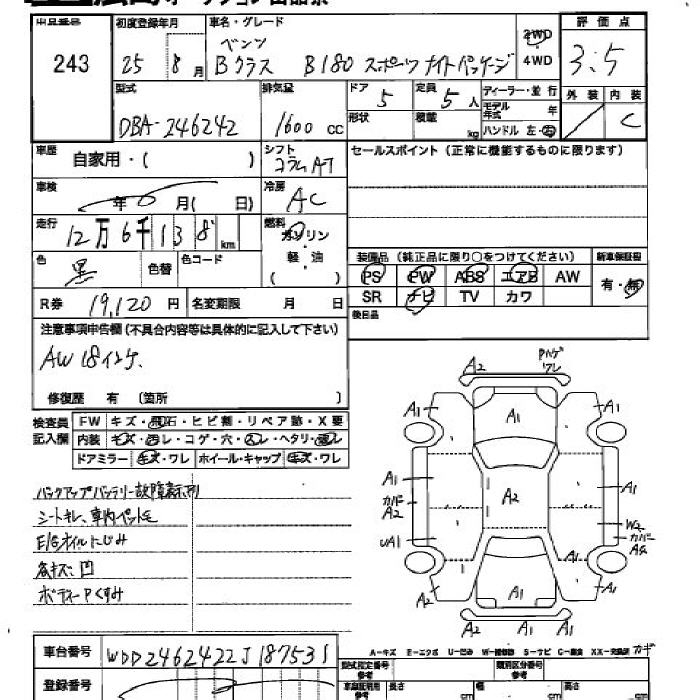 出品番号 初度登録年月 車名・グレード 評価点
243 25年 8月 ベンツ 2WD 3.5
Bクラス B180 スポーツナイトパッケージ 4WD
型式 排気量 ドア 定員 ディーラー・並行 外装 内装
DBA-246242 1600 cc 5 5人 モデル年式 年 C
形状 積載 kg ハンドル 左・右
車歴 自家用・( ) シフト コラムAT セールスポイント(正常に機能するものに限ります)
車検 年 月( 日) 冷房 AC
走行 12万6千138km 燃料 ガソリン
軽・油
( )
色 黒 色替 色コード 装備品(純正品に限り○をつけてください) 新車保証書
PS PW ABS エアB AW 有・無
R券 19,120円 名変期限 月 日 SR ナビ TV カワ
注意事項申告欄(不具合内容等は具体的に記入して下さい) 後日品
AW 18インチ、
修復歴 有 (箇所 )
検査員記入欄 FW キズ・飛石・ヒビ割・リペア跡・X要
内装 キズ・汚レ・コゲ・穴・スレ・ヘタリ・濡レ
ドアミラー キズ・ワレ ホイール・キャップ キズ・ワレ
バックアップバッテリー故障表示
シートキレ、車内ペット毛
E/Gオイルにじみ
各キズ、凹
ボディーPくすみ
A2 Pハゲ
ワレ
A1 A1 A1
A1 A1
カバー
A2 A2
W2
カバー
UA1 A1
A2 A1 A1
W2 A1 A1
A-キズ E-エクボ U-凹み W-補修跡 S-サビ C-腐食 XX-交換済 カギ
車台番号 WDD2462422J187531
登録番号 型式指定番号 参考 類別区分番号 参考
長さ cm 幅 cm 高さ cm